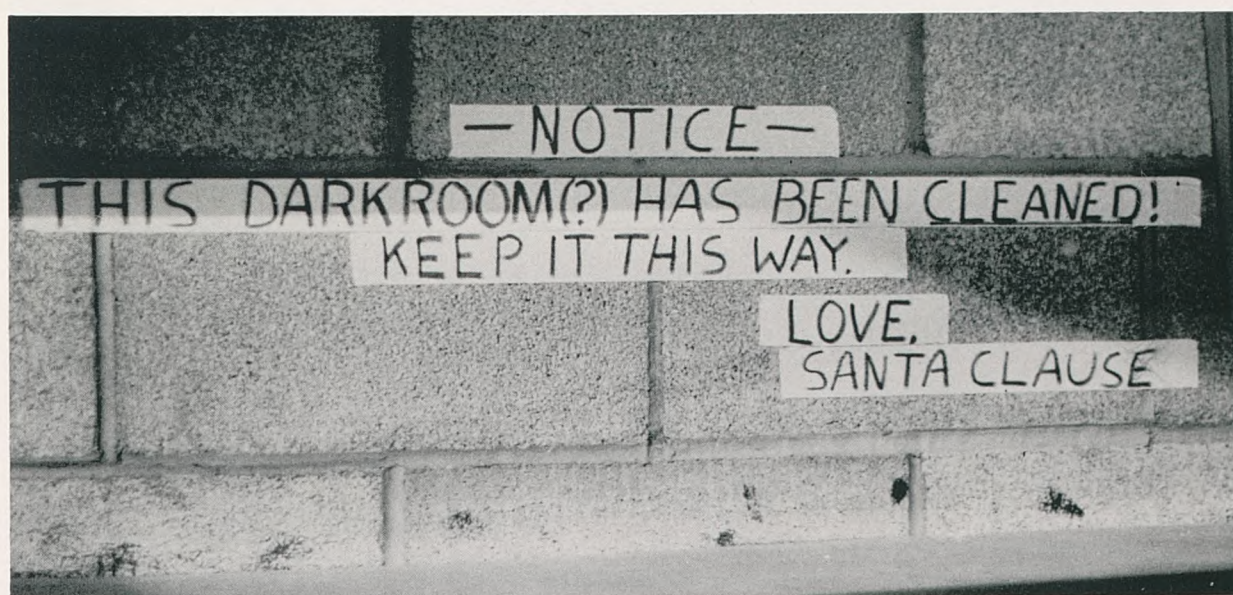 —NOTICE—
THIS DARKROOM(?) HAS BEEN CLEANED!
KEEP IT THIS WAY.
LOVE,
SANTA CLAUSE